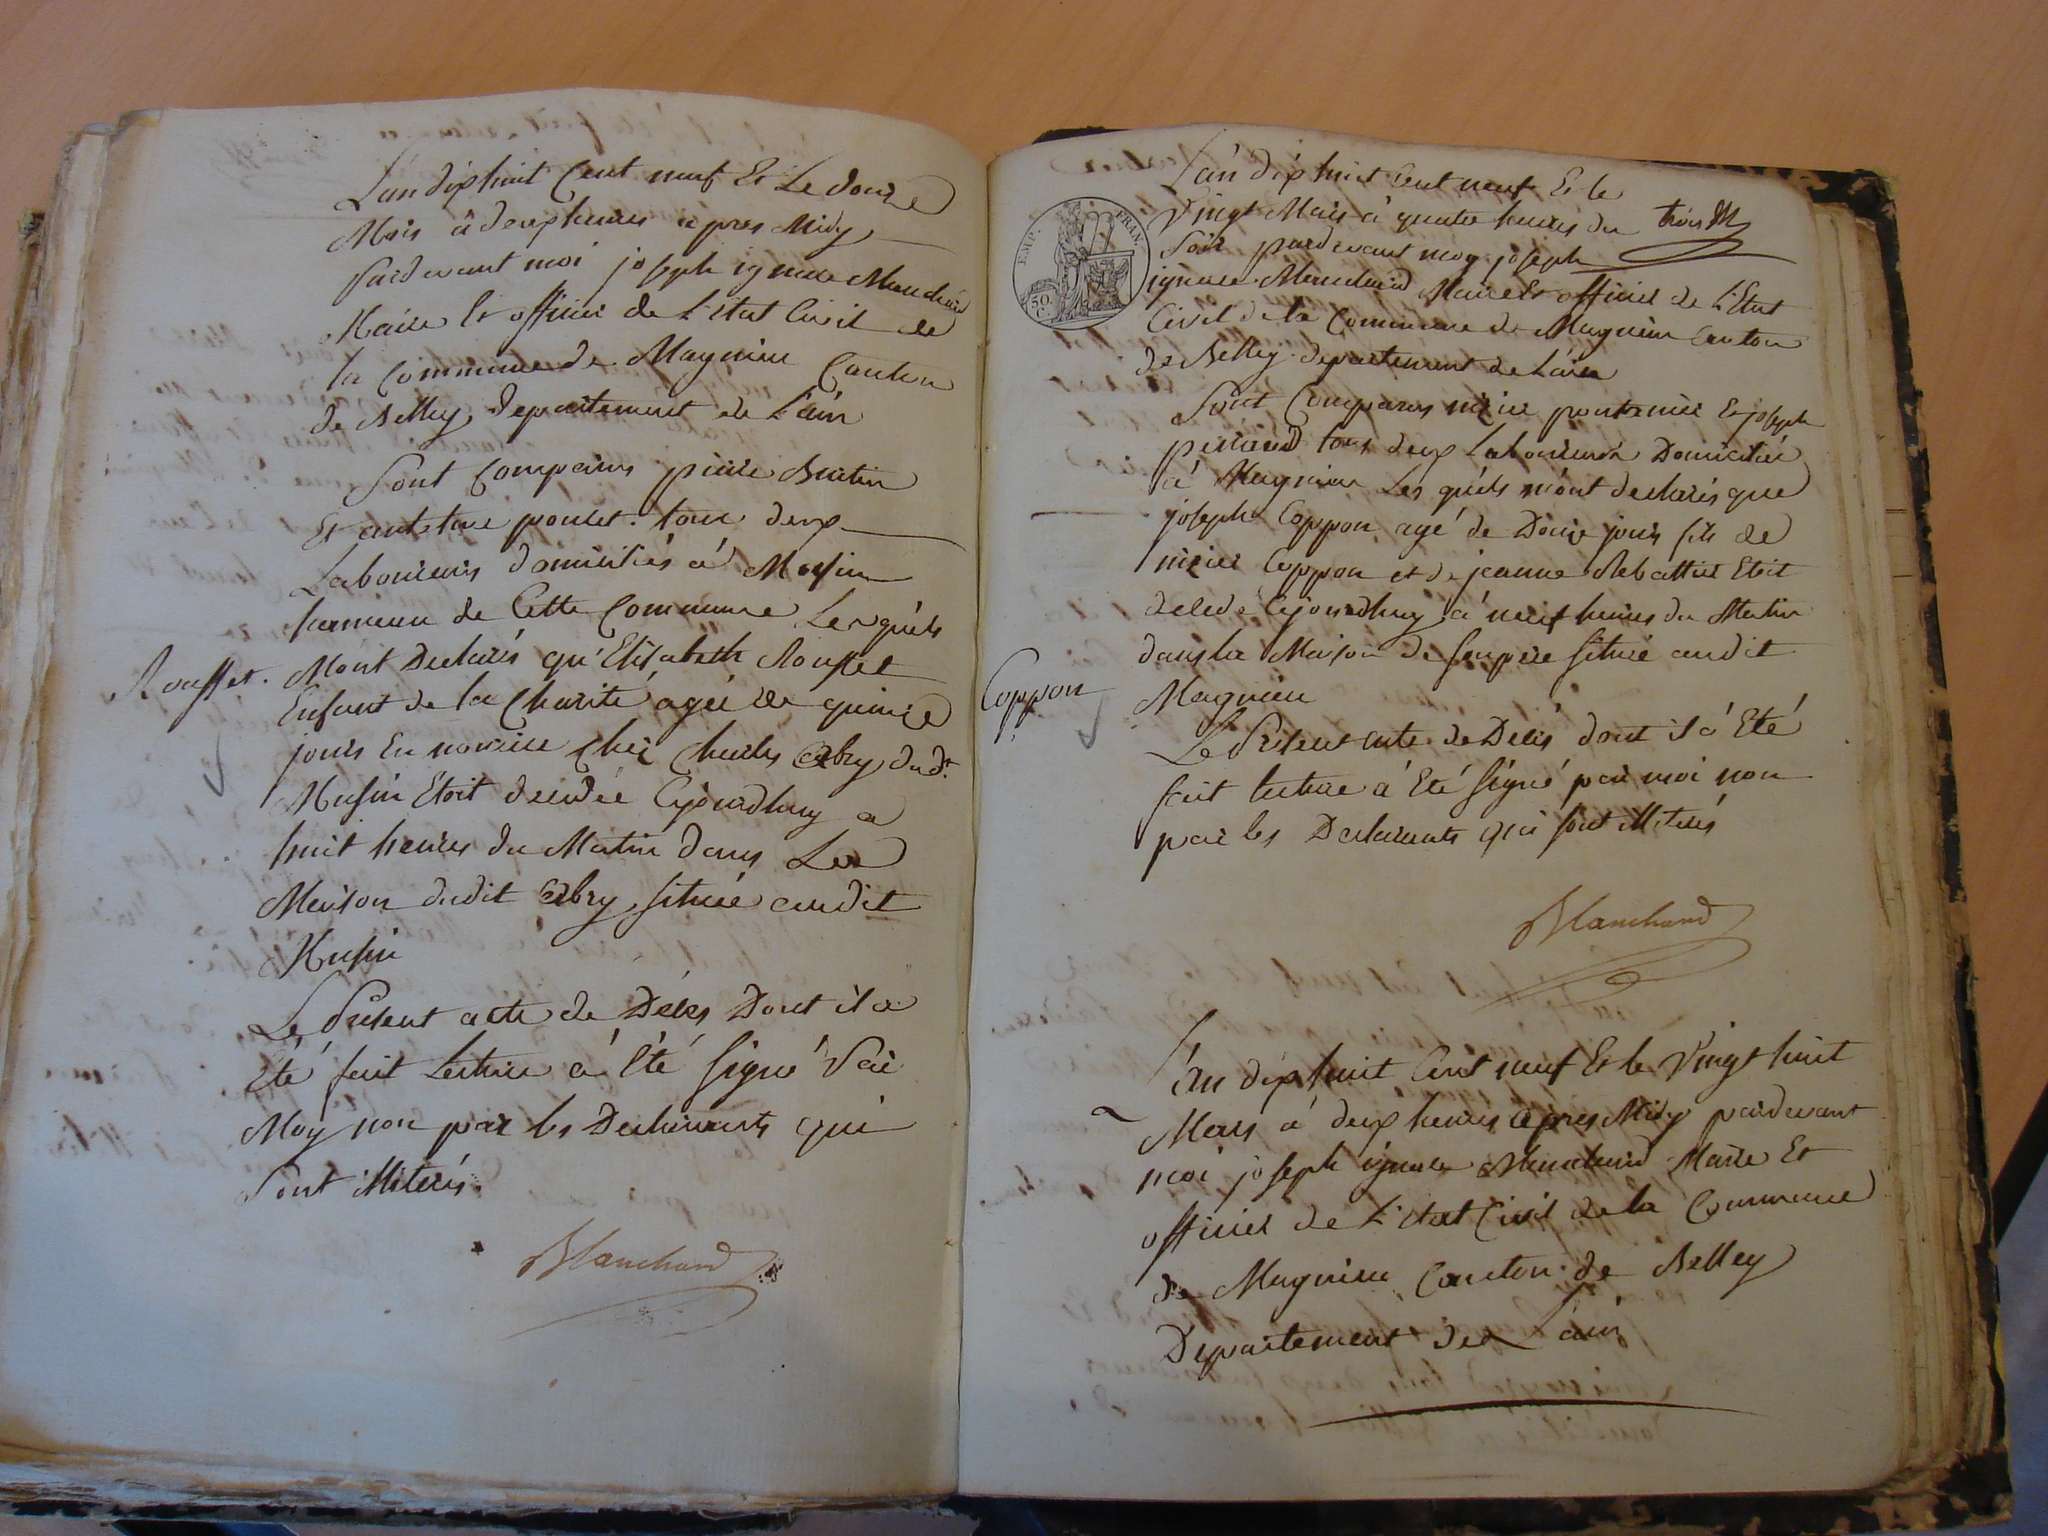 L'an dixhuit Cent neuf Et Le douze
Mars à deux heures apres Midy
Pardevant moi joseph ignace Blanchard
Maire Et officier de L'état Civil de
la Commune de Magnieu Canton
de Belley departement de L'ain
Sont Comparus pierre Burtin
Et poncet. tous deux
Laboureurs domiciliés à Musin
hameau de Cette Commune Lesquels
Rousset.
Mont Declarés qu'Elisabeth Rousset
Enfant de la Charité agée de quinze
jours En nourice Chez Charles Abry dudt
Musin Etoit decedée Cejourdhuy a
huit heures du Matin dans La
Maison dudit Abry située audit
Musin
Le Présent acte de Décès Dont il a
Eté fait Lecture a Eté signé Par
Moy non par les Declarants qui
Sont illiterés.
Blanchard
EMP. FRAN.
50. C.
L'an dix huit Cent neuf Et le
Vingt Mars à quatre heures du
trois
Soir pardevant moy joseph
ignace Blanchard Maire Et officier de L'Etat
Civil de la Commune de Magnieu Canton
de Belley departement de L'ain
Sont Comparus pontanier Et joseph
perraud tous deux Laboureurs Domicilié
à Magnieu Les quels m'ont declarés que
joseph Coppon agé de Douze jours fils de
Coppon et de jeanne Rebattier Etoit
decedé Cejourdhuy à neuf heures du Matin
dans la Maison de son pere située audit
Coppon
Magnieu
Le Présent acte de Décès dont il a Eté
fait lecture a Eté signé par moi non
par les Declarants qui sont illiterés
Blanchard
L'an dix huit Cent neuf Et le Vingt huit
Mars à deux heures apres Midy pardevant
moi joseph ignace Blanchard Maire Et
officier de L'état Civil de la Commune
de Magnieu Canton de Belley
Departement de L'ain